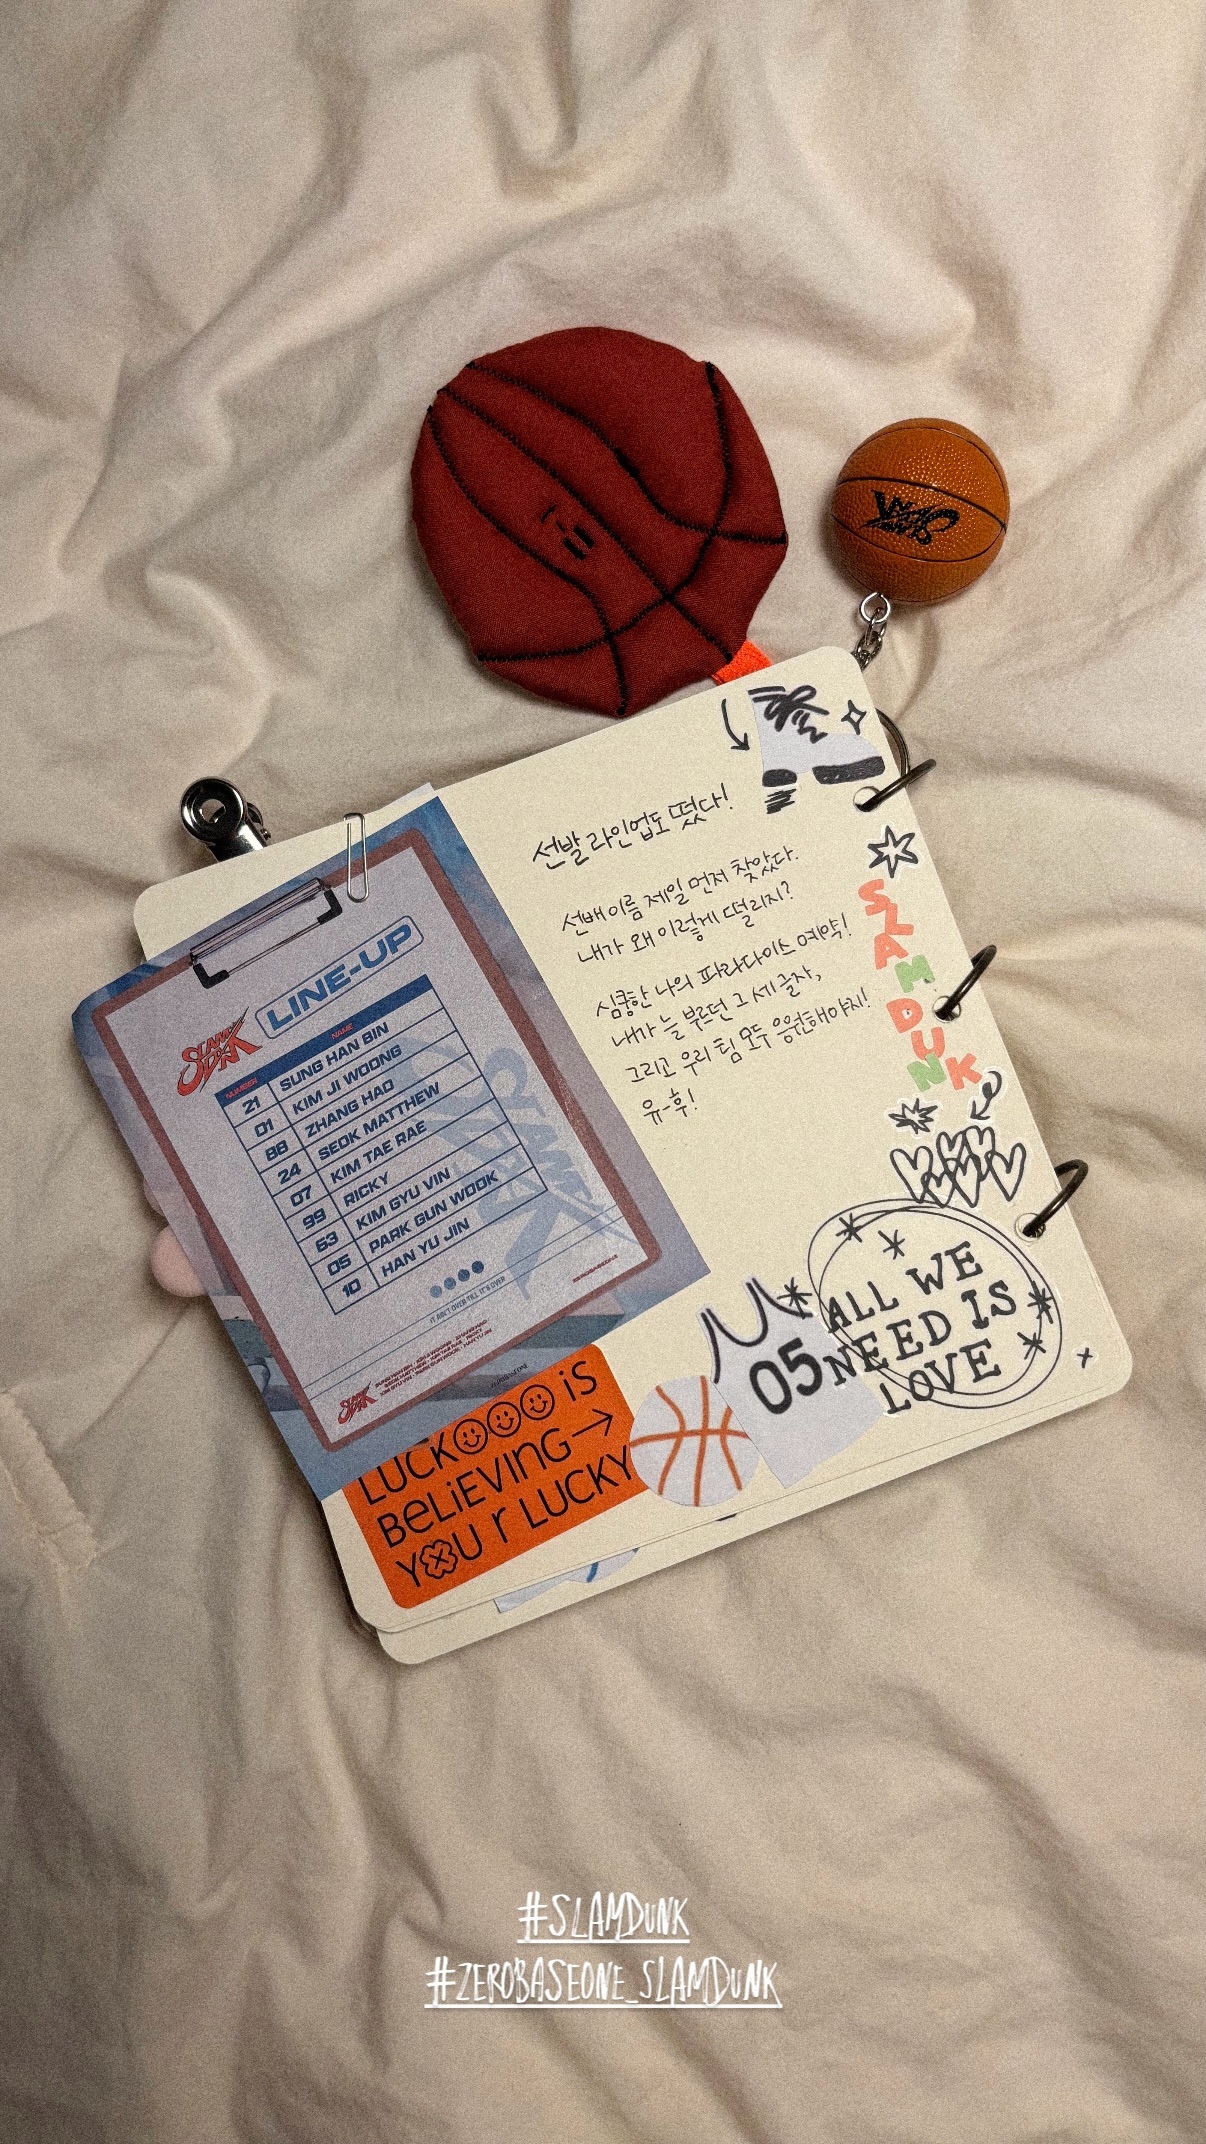 SLAM DUNK
선발 라인업도 떴다!
선배 이름 제일 먼저 찾았다.
내가 왜 이렇게 떨리지?
심쿵한 나의 파라다이스 예약!
내가 늘 부르던 그 세 글자,
그리고 우리 팀 모두 응원해야지!
유-후!
SLAM DUNK
SLAM DUNK
LINE-UP
NUMBER NAME
21 SUNG HAN BIN
01 KIM JI WOONG
88 ZHANG HAO
24 SEOK MATTHEW
07 KIM TAE RAE
99 RICKY
63 KIM GYU VIN
05 PARK GUN WOOK
10 HAN YU JIN
SLAM DUNK
IT AIN'T OVER TILL IT'S OVER
ZEROBASEONE
SLAM DUNK
SUNG HAN BIN · KIM JI WOONG · ZHANG HAO
SEOK MATTHEW · KIM TAE RAE · RICKY
KIM GYU VIN · PARK GUN WOOK · HAN YU JIN
ALL WE
NEED IS
LOVE
05
LUCK iS
BeLiEVING
YOU r LUCKY
#SLAMDUNK
#ZEROBASEONE_SLAMDUNK